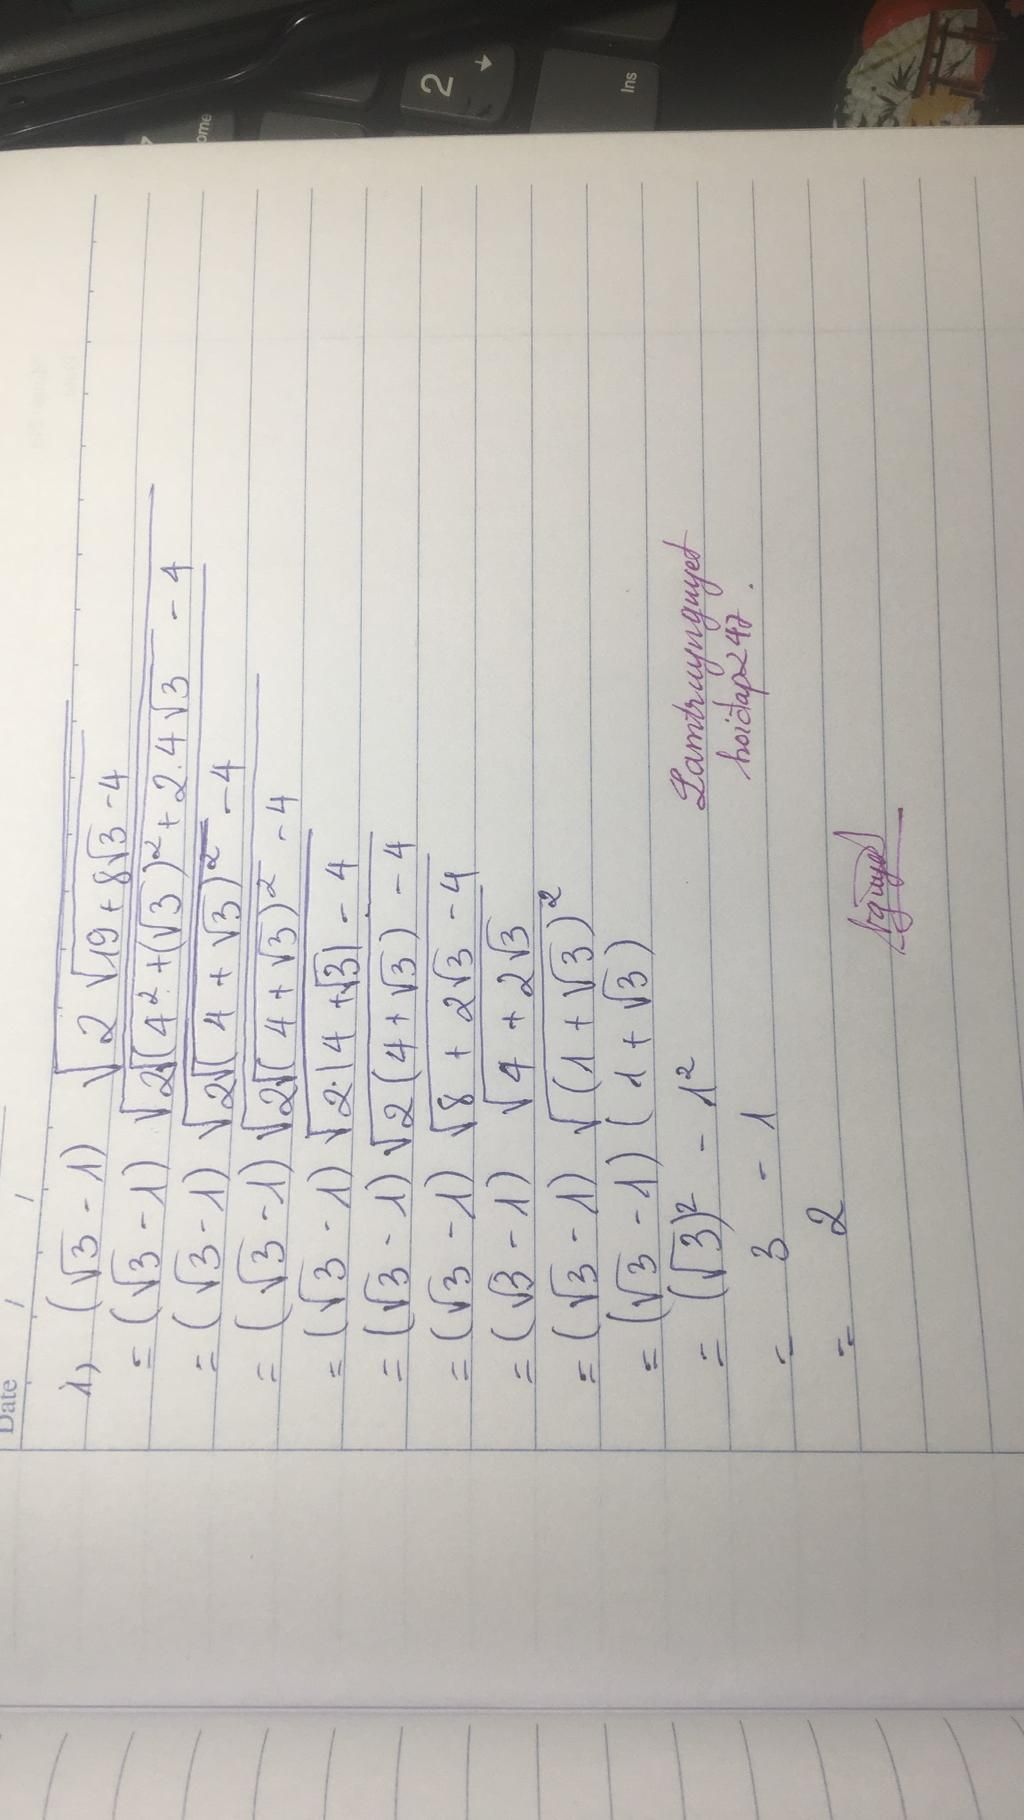 Date / /
1) (√3 - 1) √(2√(19 + 8√3) - 4)
= (√3 - 1) √(2√(4² + (√3)² + 2.4√3) - 4)
= (√3 - 1) √(2√(4 + √3)² - 4)
= (√3 - 1) √(2√(4 + √3)² - 4)
= (√3 - 1) √(2.|4 + √3| - 4)
= (√3 - 1) √(2(4 + √3) - 4)
= (√3 - 1) √(8 + 2√3 - 4)
= (√3 - 1) √(4 + 2√3)
= (√3 - 1) √(1 + √3)²
= (√3 - 1) (1 + √3)
= (√3)² - 1²
= 3 - 1
= 2
Lamtruynguyet
hoidap247.
Nguyet
2
Ins
ome